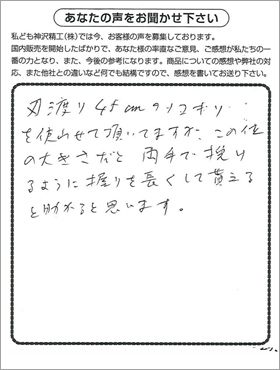 あなたの声をお聞かせ下さい
私ども神沢精工(株)では今、お客様の声を募集しております。
国内販売を開始したばかりで、あなた様の率直なご意見、ご感想が私たちの一
番の力となり、また、今後の参考になります。商品についての感想や弊社の対
応、また他社との違いなど何でも結構ですので、感想を書いてお送り下さい。
刃渡り45cmのノコギリ…
を使山せて頂いてますが、この位
の大きさだと両手で挽け
るように握りを長くして貰える
と助かると思います。